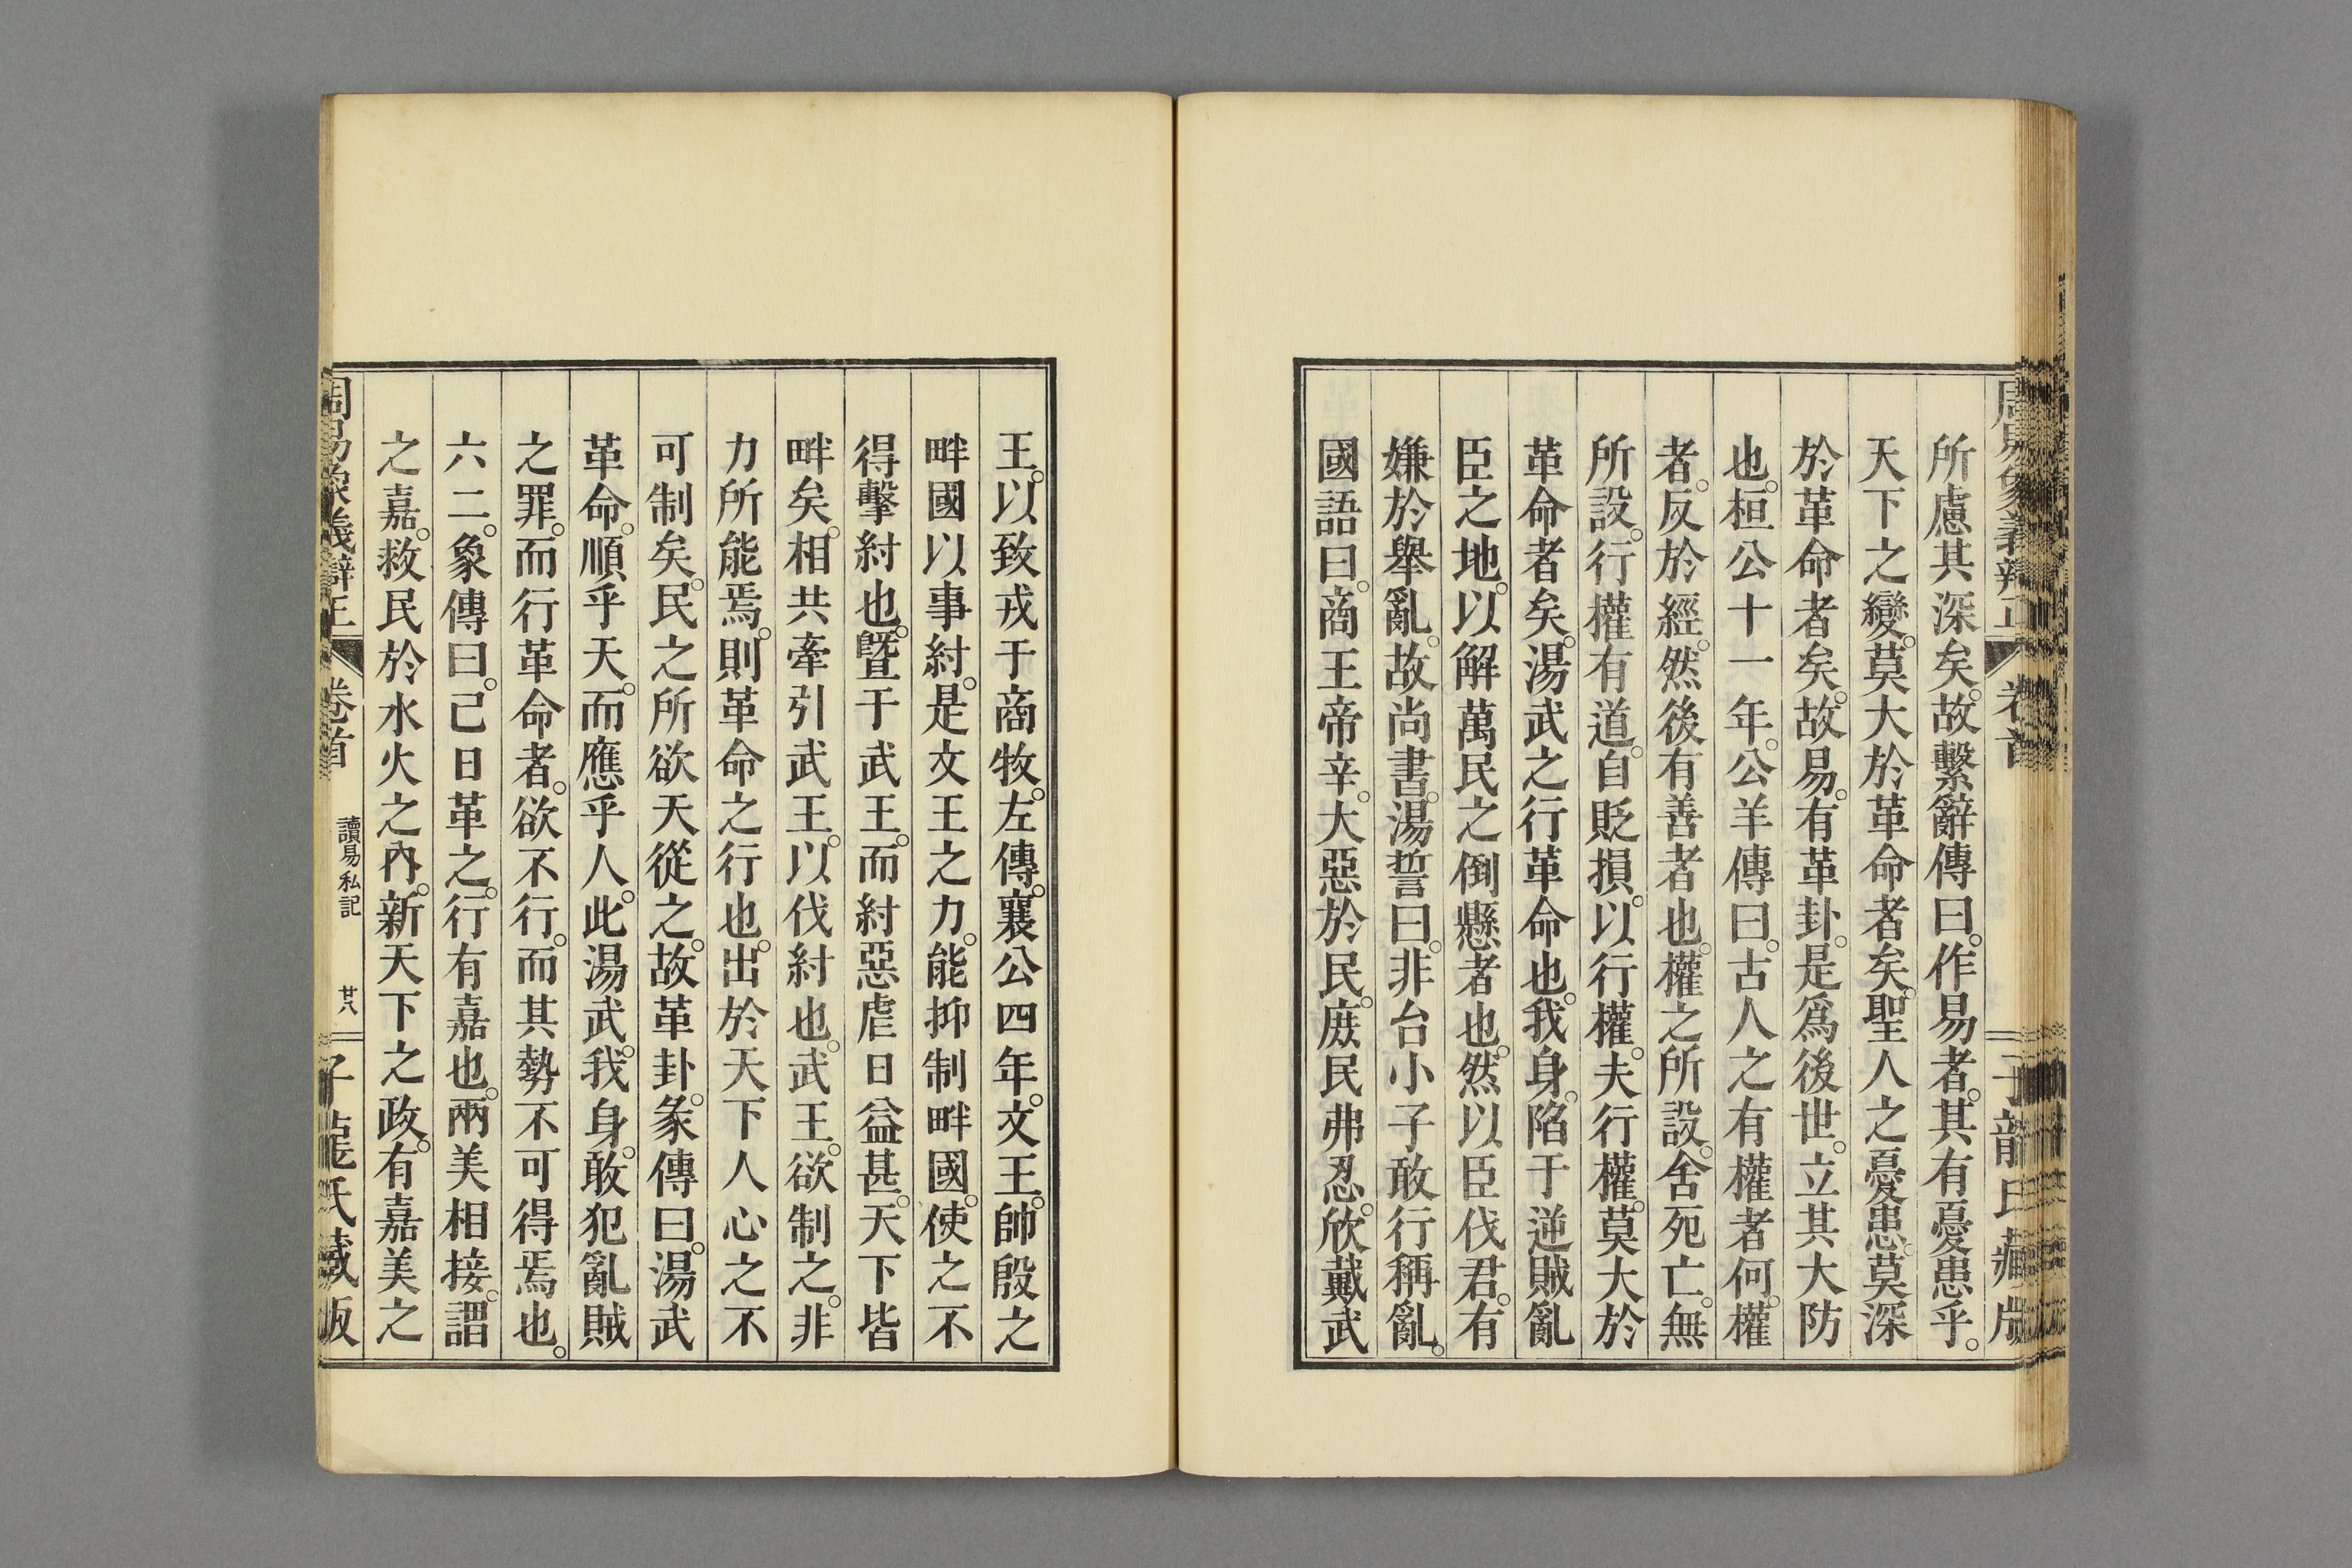 所慮其深矣。故繫辭傳曰。作易者。其有憂患乎。
天下之變。莫大於革命者矣。聖人之憂患。莫深
於革命者矣。故易。有革卦。是爲後世。立其大防
也。桓公十一年。公羊傳曰。古人之有權者何。權
者。反於經。然後有善者也。權之所設。舍死亡。無
所設。行權有道。自貶損。以行權。夫行權。莫大於
革命者矣。湯武之行革命也。我身。陷于逆賊亂
臣之地。以解萬民之倒懸者也。然以臣伐君。有
嫌於舉亂。故尚書。湯誓曰。非台小子敢行稱亂。
國語曰。商王帝辛。大惡於民。庶民弗忍。欣戴武
王。以致戎于商牧。左傳。襄公四年。文王。帥殷之
畔國以事紂。是文王之力。能抑制畔國。使之不
得擊紂也。曁于武王。而紂惡虐日益甚。天下皆
畔矣。相共牽引武王。以伐紂也。武王。欲制之。非
力所能焉。則革命之行也。出於天下人心之不
可制矣。民之所欲天從之。故革卦。彖傳曰。湯武
革命。順乎天。而應乎人。此湯武。我身。敢犯亂賊
之罪。而行革命者。欲不行。而其勢不可得焉也。
六二。象傳曰。己日革之。行有嘉也。兩美相接。謂
之嘉。救民於水火之內。新天下之政。有嘉美之
周易象義辯正 卷首 讀易私記 廿八 子龍氏藏版